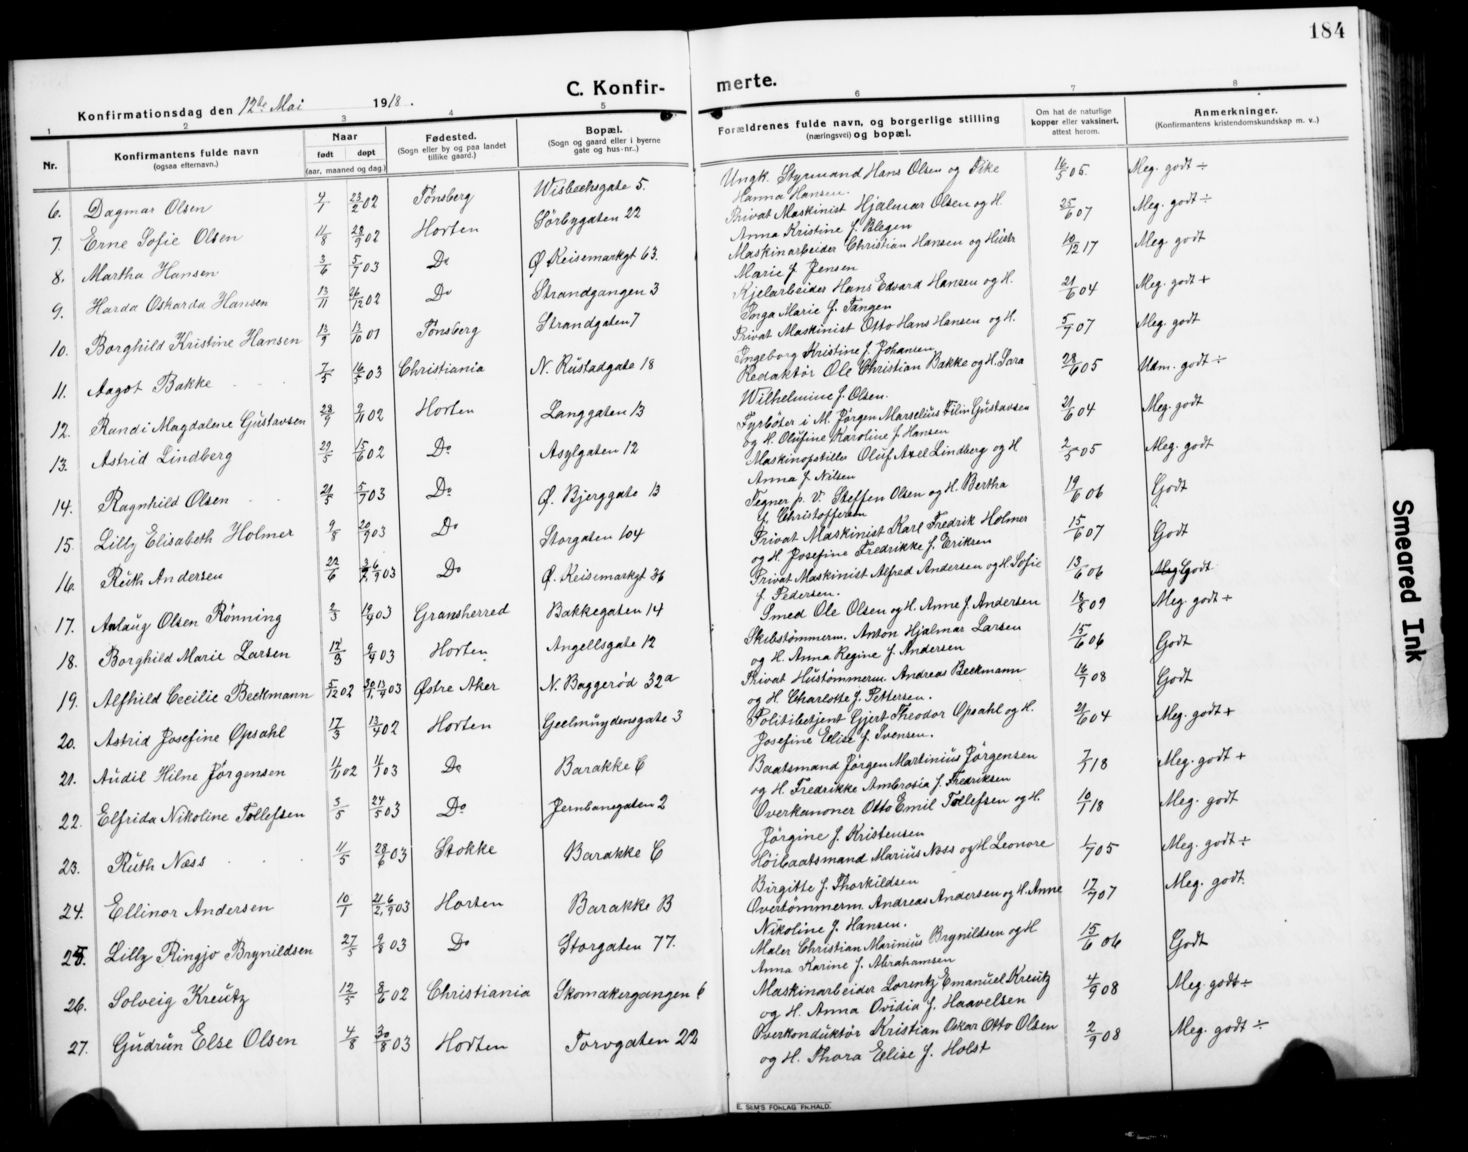 184
C. Konfirmerte.
Konfirmationsdag den 12te Mai 1918.
1 2 3 4 5 6 7 8
Nr.
Konfirmantens fulde navn
(ogsaa efternavn.)
Naar
født døpt
(aar, maaned og dag)
Fødested.
(Sogn eller by og paa landet
tillike gaard.)
Bopæl.
(Sogn og gaard eller i byerne
gate og hus-nr.)
Forældrenes fulde navn, og borgerlige stilling
(næringsvei) og bopæl.
Om hat de naturlige
kopper eller vaksinert,
attest herom.
Anmerkninger.
(Konfirmantens kristendomskundskap m. v.)
6. Dagmar Olsen 4/1 23/2 02 Tønsberg Wisbechsgate 5. Ungk. Styrmand Hans Olsen og Fike 16/5 05. Meg. godt ÷
Hanna Hansen.
7. Erne Sofie Olsen 11/8 28/9 02 Horten Sørbygaten 22 Privat Maskinist Hjalmar Olsen og H. 25/6 07 Meg. godt ÷
Anna Kristine f. Blegen
8. Martha Hansen 3/6 5/7 03 Do Ø. Keisemarkgt 63. Maskinarbeider Christian Hansen og Hustr 10/12 17 Meg. godt
Marie f. Jensen
9. Harda Oskarda Hansen 13/11 26/12 02 Do Strandgangen 3 Kjelarbeider Hans Edvard Hansen og H. 21/6 04 Meg. godt +
Inga Marie f. Tangen
10. Borghild Kristine Hansen 13/9 13/10 01 Tønsberg Strandgaten 7 Privat Maskinist Otto Hans Hansen og H. 5/9 07 Meg. godt
Ingeborg Kristine f. Johansen
11. Aagot Bakke 7/5 16/5 03 Christiania N. Rustadgate 18 Redaktør Ole Christian Bakke og H. Sara 28/6 05 Udm. godt ÷
Wilhelmine f. Olsen.
12. Randi Magdalene Gustavsen 23/9 9/11 02 Horten Langgaten 13 Fyrbøter i M. Jørgen Marselius Filin Gustavsen 21/6 04 Meg. godt
og H. Olufine Karoline f. Hansen
13. Astrid Lindberg 29/5 15/6 02 Do Asylgaten 12 Maskinopstiller Oluf Axel Lindberg og H 2/5 05 Meg. godt
Anna f. Nilsen
14. Ragnhild Olsen 21/5 5/7 03 Do Ø. Bjerggate 13 Tegner p. V. Steffen Olsen og H. Bertha 19/6 06 Godt
f. Christoffersen
15. Lilly Elisabeth Holmer 9/8 20/9 03 Do Storgaten 104 Privat Maskinist Karl Fredrik Holmer 15/6 07 Godt
og H. Josefine Fredrikke f. Eriksen
16. Ruth Andersen 22/6 6/9 03 Do Ø. Keisemarkgt 36 Privat Maskinist Alfred Andersen og H. Sofie 13/6 06 Godt
f. Pedersen.
17. Aslaug Olsen Rønning 2/3 19/4 03 Gransherred Bakkegaten 14 Smed Ole Olsen og H. Anne f. Andersen 18/8 09 Meg. godt +
18. Borghild Marie Larsen 12/3 9/4 03 Horten Angellsgate 12 Skibstømmerm. Anton Hjalmar Larsen 15/6 06 Godt
og H. Anna Regine f. Andersen
19. Alfhild Cecilie Beckmann 5/12 02 13/9 03 Østre Aker N. Baggerød 32a Privat Hustømmerm. Andreas Beckmann 16/9 08 Godt
og H. Charlotte f. Pettersen.
20. Astrid Josefine Opsahl 17/3 13/4 02 Horten Geelmuydensgate 3 Politibetjent Gjert Theodor Opsahl og H. 21/6 04 Meg. godt +
Josefine Elise f. Svensen.
21. Audil Hilne Jørgensen 4/11 02 4/1 03 Do Barakke C Baatsmand Jørgen Martinius Jørgensen 7/1 18 Meg. godt +
og H. Fredrikke Ambrosia f. Fredriksen
22. Elfrida Nikoline Tollefsen 3/5 24/5 03 Do Jernbanegaten 2 Overkanoner Otto Emil Tollefsen og H. 10/1 18 Meg. godt
Jørgine f. Kristensen
23. Ruth Næss 11/5 28/6 03 Stokke Barakke C Høibaatsmand Marius Næss og H. Leonore 1/7 05 Meg. godt ÷
Birgitte f. Thorkildsen
24. Ellinor Andersen 10/1 6/9 03 Horten Barakke B Overtømmerm. Andreas Andersen og H. Anne 17/9 07 Meg. godt.
Nikoline f. Hansen.
25. Lilly Ringjo Brynildsen 27/5 9/8 03 Do Storgaten 77. Maler Christian Marinius Brynildsen og H 15/6 06 Godt
Anna Karine f. Abrahamsen
26. Solveig Kreutz 12/5 8/6 02 Christiania Skomakergangen 6 Maskinarbeider Lorentz Emanuel Kreutz 4/9 08 Meg. godt ÷
og H. Anna Ovidia f. Haavelsen
27. Gudrun Else Olsen 4/8 30/8 03 Horten Torvgaten 22 Overkonduktør Kristian Oskar Otto Olsen 2/9 08 Meg. godt ÷
og H. Thora Elise f. Holst
E. SEM'S FORLAG FR.HALD.
Smeared Ink